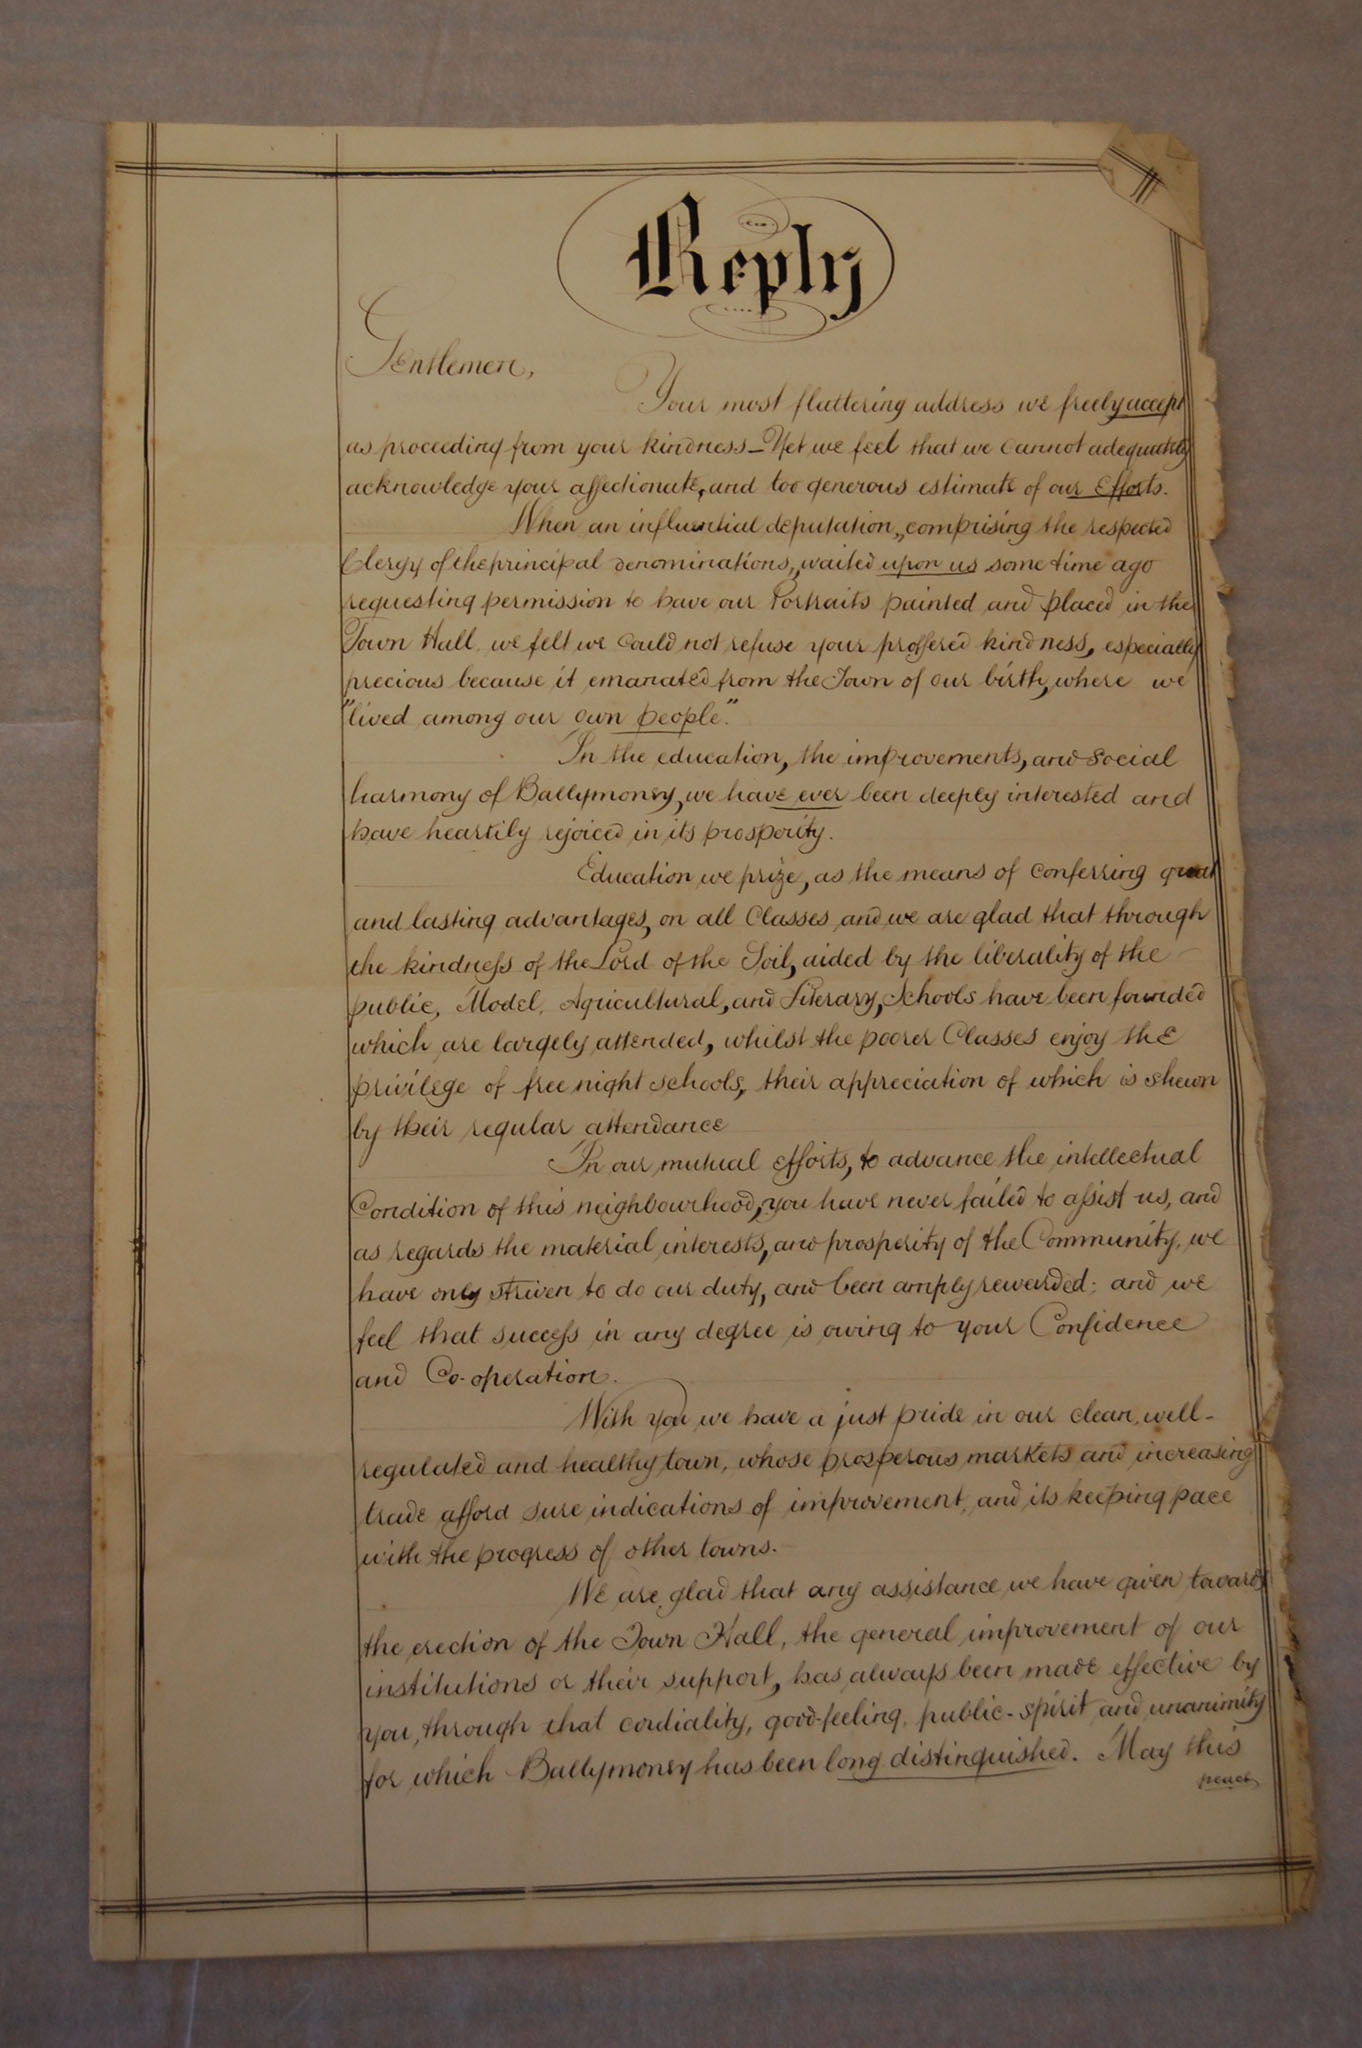 Reply
Gentlemen,
Your most flattering address we freely accept
as proceeding from your kindness - Yet we feel that we cannot adequately
acknowledge your affectionate, and too generous estimate of our Efforts.
When an influential deputation, comprising the respected
Clergy of the principal denominations, waited upon us some time ago
requesting permission to have our Portraits painted and placed in the
Town Hall, we felt we could not refuse your proffered kindness, especially
precious because it emanated from the Town of our birth, where we
"lived among our own people".
In the education, the improvements, and social
harmony of Ballymoney, we have ever been deeply interested and
have heartily rejoiced in its prosperity.
Education we prize, as the means of conferring great
and lasting advantages, on all Classes and we are glad that through
the kindness of the Lord of the Soil, aided by the liberality of the
public, Model, Agricultural, and Literary, Schools have been founded
which are largely attended, whilst the poorer Classes enjoy the
privilege of free night schools, their appreciation of which is shewn
by their regular attendance
In our mutual efforts, to advance the intellectual
Condition of this neighbourhood, you have never failed to assist us, and
as regards the material interests, and prosperity of the Community, we
have only striven to do our duty, and been amply rewarded; and we
feel that success in any degree is owing to your Confidence
and Co-operation.
With you we have a just pride in our clean, well-
regulated and healthy town, whose prosperous markets and increasing
trade afford sure indications of improvement, and its keeping pace
with the progress of other towns.
We are glad that any assistance we have given towards
the erection of the Town Hall, the general improvement of our
institutions or their support, has always been made effective by
you, through that cordiality, good-feeling, public-spirit and unanimity
for which Ballymoney has been long distinguished. May this
peace